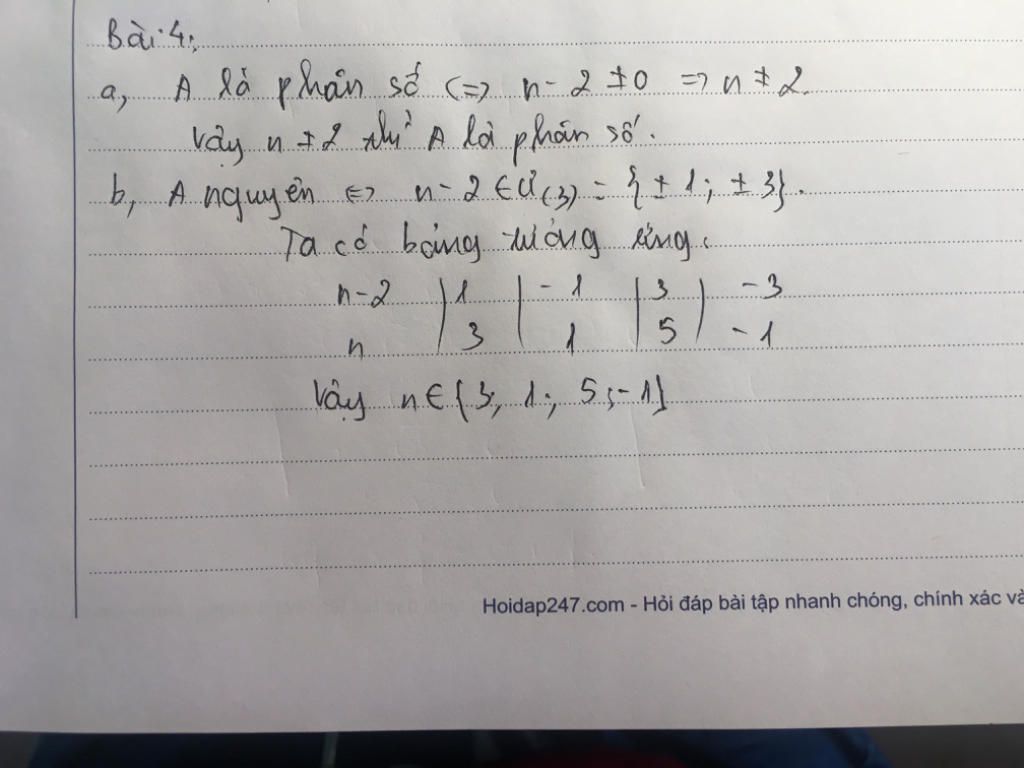 Bài 4:
a, A là phân số <=> n - 2 ≠ 0 => n ≠ 2.
Vậy n ≠ 2 thì A là phân số.
b, A nguyên <=> n - 2 ∈ Ư(3) = {± 1; ± 3}.
Ta có bảng tương ứng:
n-2 | 1 | - 1 | 3 | - 3
n | 3 | 1 | 5 | - 1
Vậy n ∈ {3; 1; 5; -1}
Hoidap247.com - Hỏi đáp bài tập nhanh chóng, chính xác và